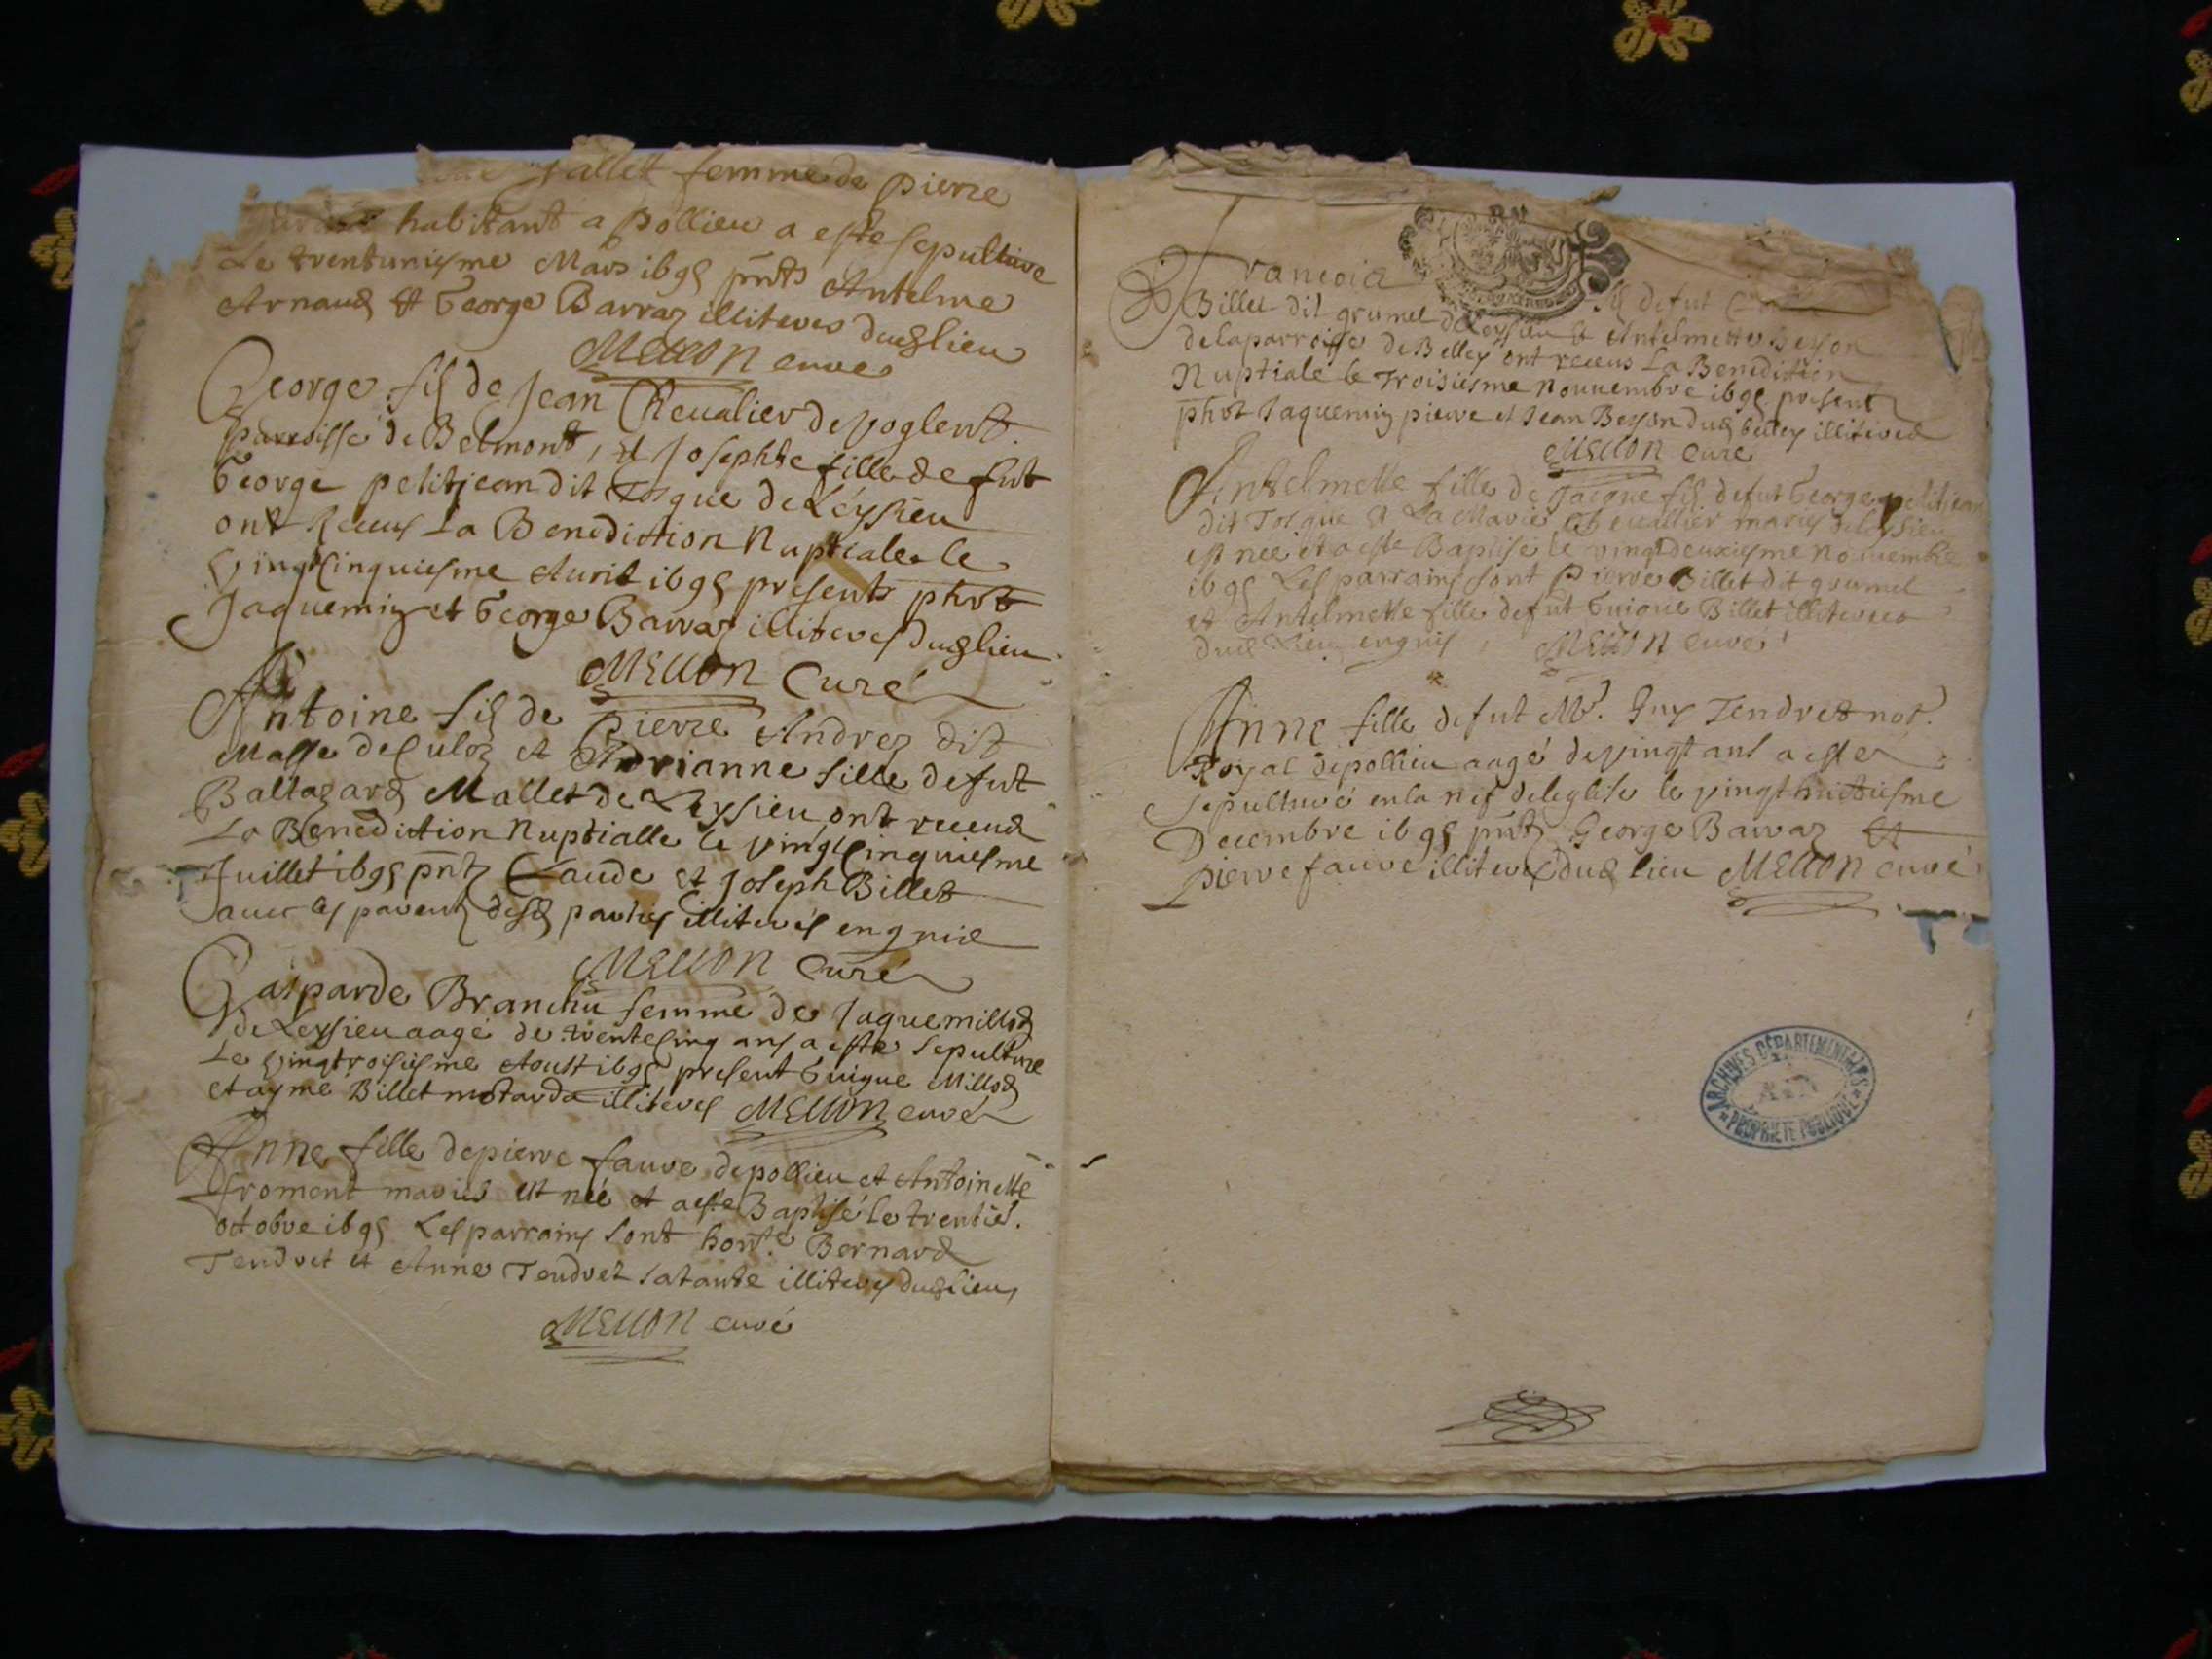 femme de pierre
habitant a pollieu a este sepulture
Le trentuniesme Mars 1695 pnts Antelme
Arnaud et George Barraz illiteres dud lieu
Mellon curé
George fils de Jean Chevalier de voglent
parroisse de Belmont, et Josephte fille de fut
George petitjean dit Tosque de Leysieu
ont Receus La Benediction Nuptiale le
vingtcinquiesme Auril 1695 presents phrt
Jaquemin et George Barraz illiteres dud lieu
Mellon Curé
Antoine fils de Pierre Andrez dit
Masse de Culoz et Adrianne fille de fut
Baltazard Mallet de Leysieu ont receus
La Benediction Nuptialle le vingtcinquiesme
Juillet 1695 pnts Claude et Joseph Billet
auec les parents desd parties illiterés enquis
Mellon Curé
Gasparde Branchu femme de Jaque millod
de Leysieu aagé de trentecinq ans a este sepulture
Le vingtroisiesme Aoust 1695 present Guigue Millod
et aymé Billet motarda illiteres Mellon curé
Anne fille de pierre faure de pollieu et Antoinette
froment mariés est née et a esté Baptisé le trenties.
octobre 1695 Les parrains sont hon.te Bernard
Tendret et Anne Tendret sa tante illiteres dud lieu,
Mellon curé
francois de fut
Billet dit grumel de Leysieu et Antelmette Beyson
de la parroisse de Belley ont receus La Benediction
Nuptiale le Troisiesme Nouuembre 1695 present
phrt Jaquemin pierre et Jean Beyson dud belley illiteres
Mellon Curé
Antelmette fille de Jaque fils de fut George petitjean
dit Tosque et La Marie Cheuallier mariés de Leysieu
est née et a esté Baptisé le vingtdeuxiesme Nouuembre
1695 Les parrains sont Pierre Billet dit grumel
et Antelmette fille de fut Guigue Billet illiteres
dud Lieu enquis, Mellon curé
Anne fille de fut Mr. Guy Tendret not.
Royal de pollieu aagé de vingt ans a esté
sepulturé en la nef de leglise le vingthuictiesme
Decembre 1695 pnts George Barraz et
pierre faure illiteres dud lieu Mellon curé
ARCHIVES DÉPARTEMENTALES
AIN
PROPRIETE PUBLIQUE